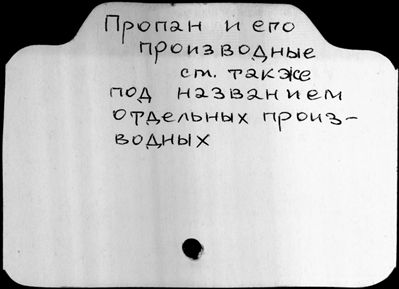 Пропан и его
производные
см. также
под названием
отдельных произ-
водных